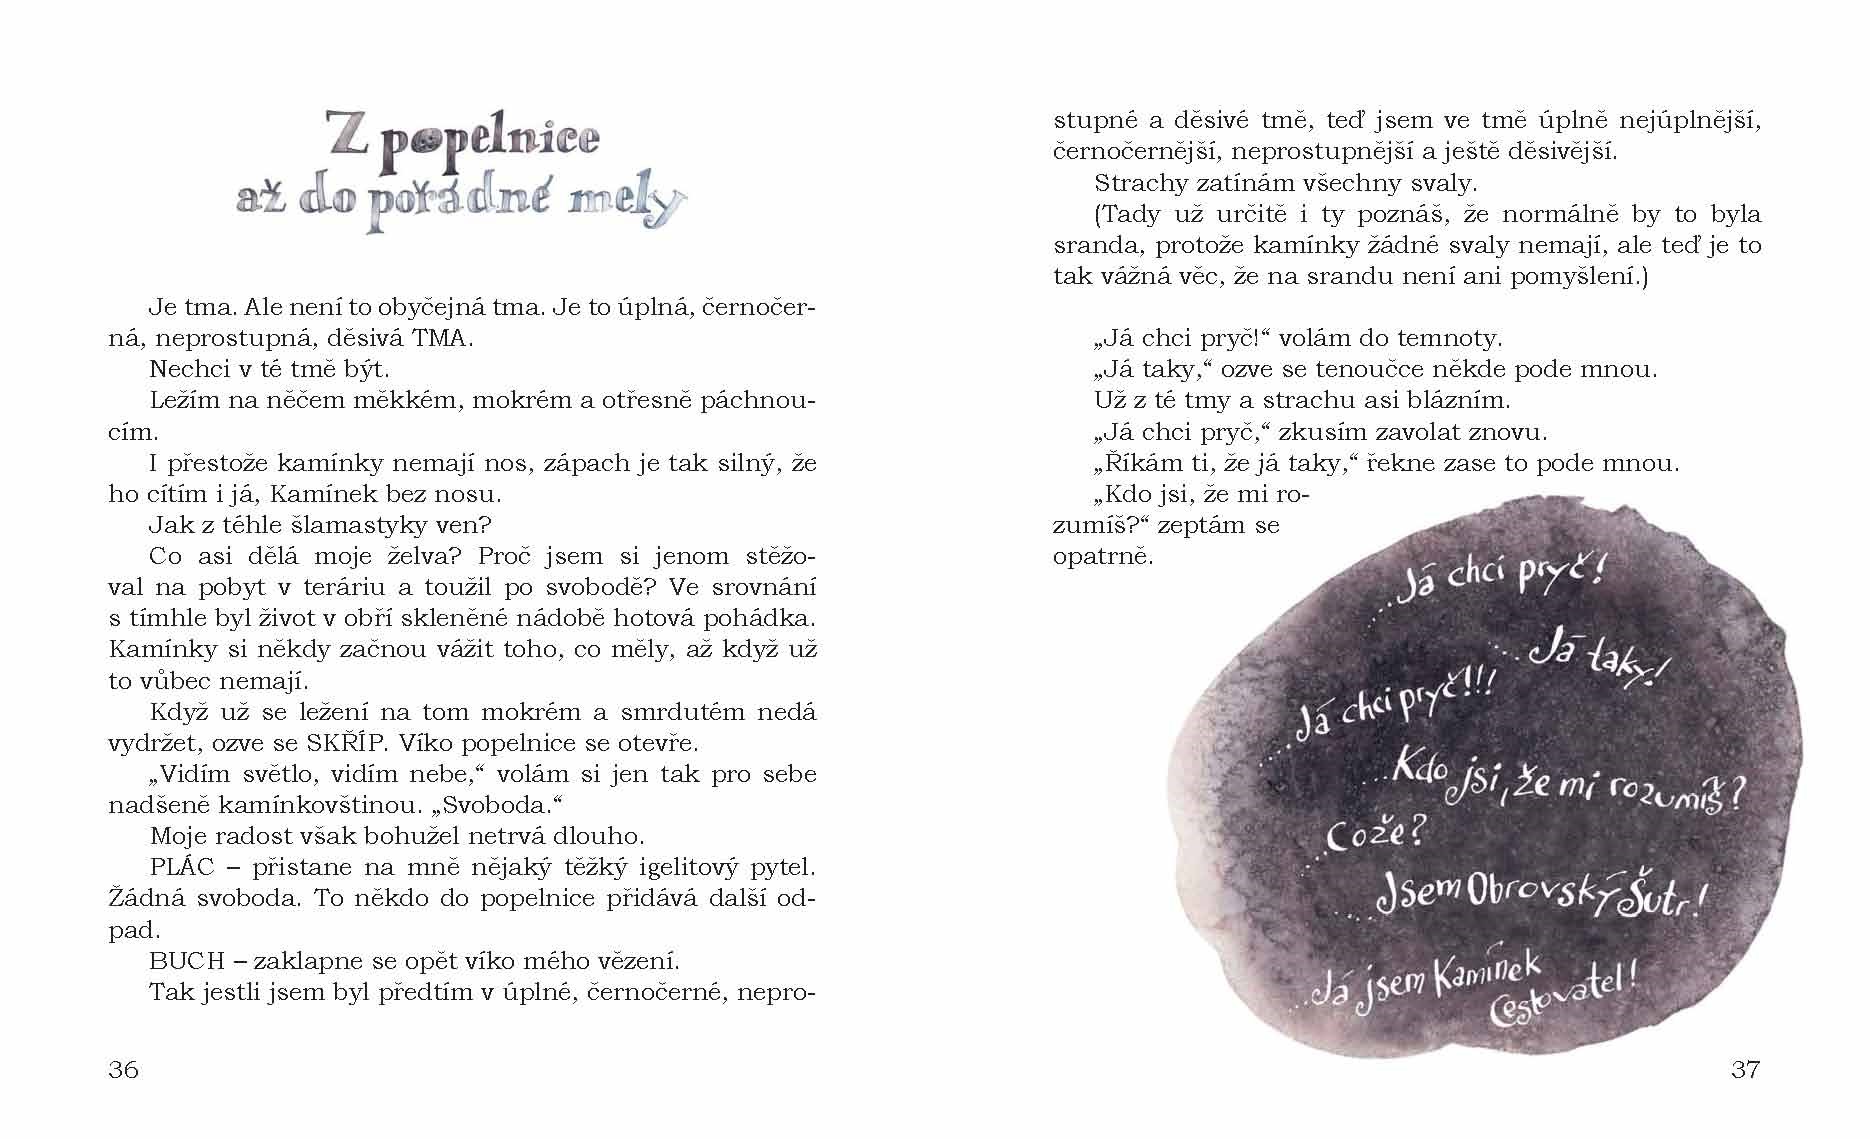 Z popelnice
až do pořádné mely
Je tma. Ale není to obyčejná tma. Je to úplná, černočer-
ná, neprostupná, děsivá TMA.
Nechci v té tmě být.
Ležím na něčem měkkém, mokrém a otřesně páchnou-
cím.
I přestože kamínky nemají nos, zápach je tak silný, že
ho cítím i já, Kamínek bez nosu.
Jak z téhle šlamastyky ven?
Co asi dělá moje želva? Proč jsem si jenom stěžo-
val na pobyt v teráriu a toužil po svobodě? Ve srovnání
s tímhle byl život v obří skleněné nádobě hotová pohádka.
Kamínky si někdy začnou vážit toho, co měly, až když už
to vůbec nemají.
Když už se ležení na tom mokrém a smrdutém nedá
vydržet, ozve se SKŘÍP. Víko popelnice se otevře.
„Vidím světlo, vidím nebe,“ volám si jen tak pro sebe
nadšeně kamínkovštinou. „Svoboda.“
Moje radost však bohužel netrvá dlouho.
PLÁC – přistane na mně nějaký těžký igelitový pytel.
Žádná svoboda. To někdo do popelnice přidává další od-
pad.
BUCH – zaklapne se opět víko mého vězení.
Tak jestli jsem byl předtím v úplné, černočerné, nepro-
36
stupné a děsivé tmě, teď jsem ve tmě úplně nejúplnější,
černočernější, neprostupnější a ještě děsivější.
Strachy zatínám všechny svaly.
(Tady už určitě i ty poznáš, že normálně by to byla
sranda, protože kamínky žádné svaly nemají, ale teď je to
tak vážná věc, že na srandu není ani pomyšlení.)
„Já chci pryč!“ volám do temnoty.
„Já taky,“ ozve se tenoučce někde pode mnou.
Už z té tmy a strachu asi blázním.
„Já chci pryč,“ zkusím zavolat znovu.
„Říkám ti, že já taky,“ řekne zase to pode mnou.
„Kdo jsi, že mi ro-
zumíš?“ zeptám se
opatrně.
...Já chci pryč!
...Já taky!
....Já chci pryč!!!
...Kdo jsi, že mi rozumíš?
....Cože?
....Jsem Obrovský Šutr!
...Já jsem Kamínek
Cestovatel!
37